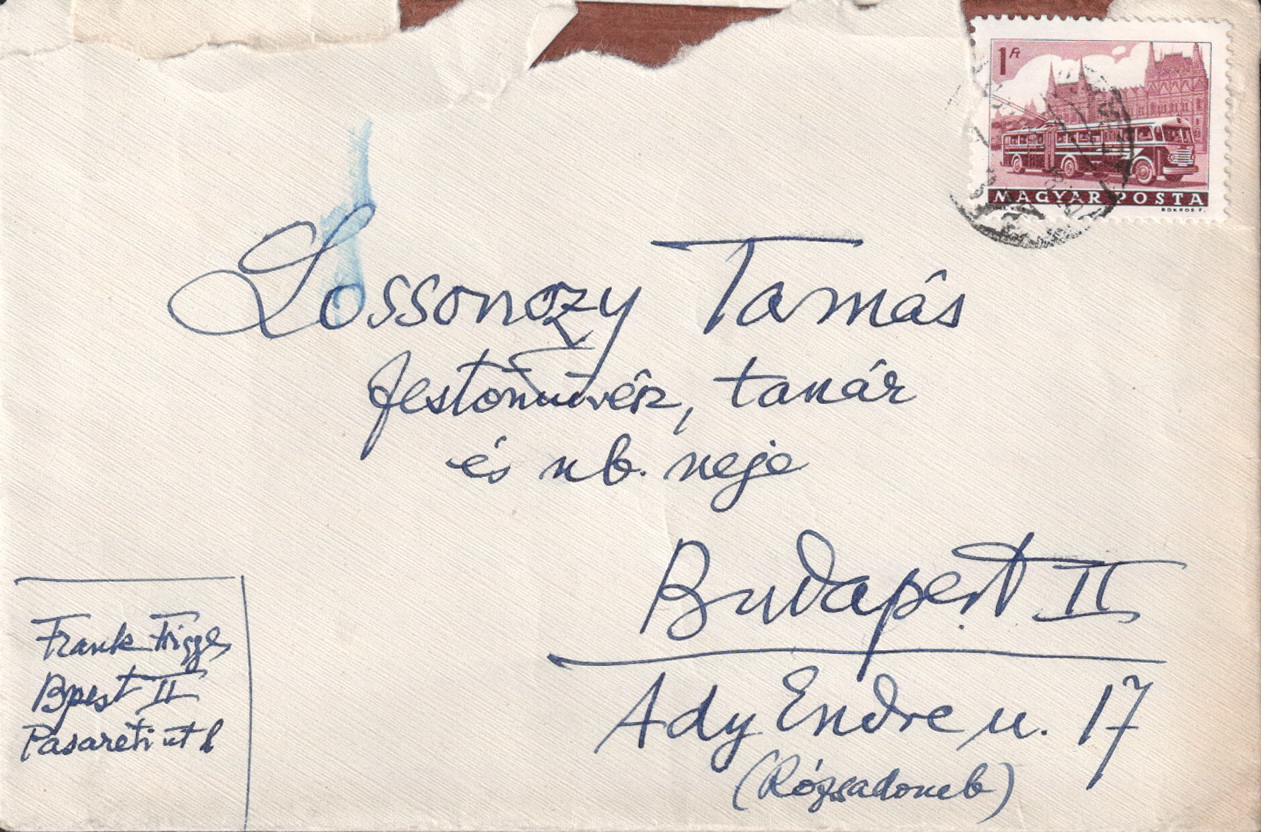 1 Ft
MAGYAR POSTA
BOKROS F.
Lossonczy Tamás
festőművész, tanár
és nb. neje
Budapest II
Ady Endre u. 17
(Rózsadomb)
Frank Frigyes
Bpest II
Pasaréti út